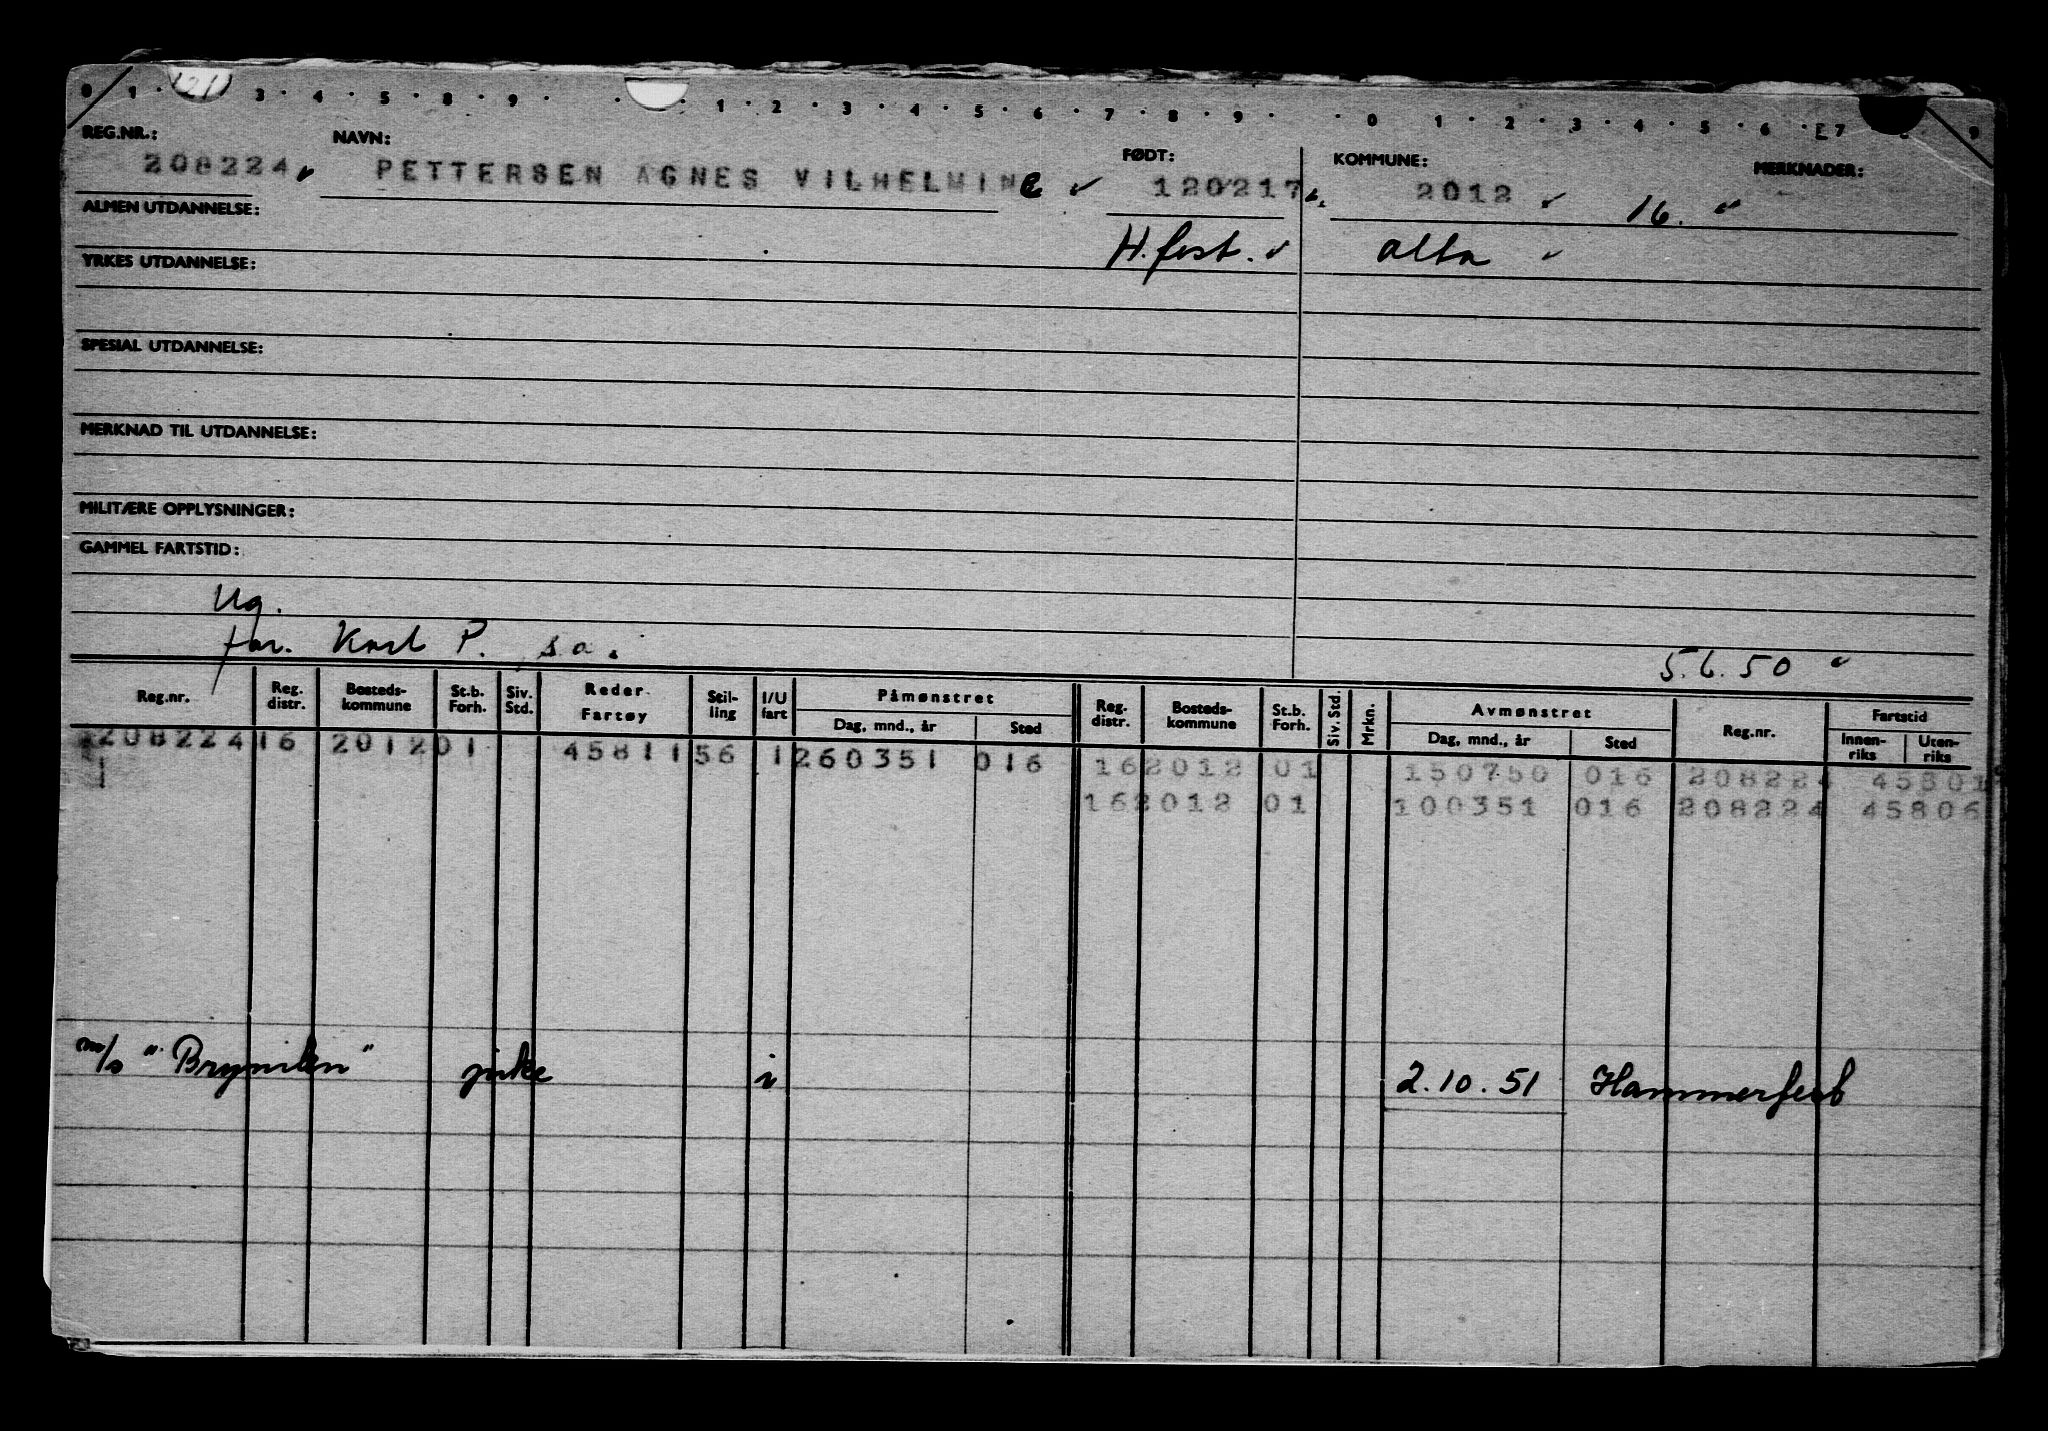 0 1 · 21 3 · 4 · 5 · 8 · 9 · · · 1 · 2 · 3 · 4 · 5 · 6 · 7 · 8 · 9 · · 0 1 · 2 · 3 · 4 · 5 · 6 · E7 9
REG.NR.: NAVN: FØDT: KOMMUNE: MERKNADER:
208224 PETTERSEN AGNES VILHELMINE 120217 2012 16.
ALMEN UTDANNELSE:
H.fest. Alta
YRKES UTDANNELSE:
SPESIAL UTDANNELSE:
MERKNAD TIL UTDANNELSE:
MILITÆRE OPPLYSNINGER:
GAMMEL FARTSTID:
Ug.
far. Karl P. sa. 5.6.50
Reg.nr. Reg. distr. Bosteds-kommune St.b. Forh. Siv. Std. Reder Fartøy Stil-ling I/U fart Påmønstret Dag, mnd., år Sted Reg. distr. Bosteds-kommune St.b. Forh. Siv. Std. Mrkn. Avmønstret Dag, mnd., år Sted Reg.nr. Fartstid Innen-riks Uten-riks
208224 16 2012 01 45811 56 1 260351 016 16 2012 01 150750 016 208224 45801
1 16 2012 01 100351 016 208224 45806
m/s "Brynilen" pike i 2.10.51 Hammerfest